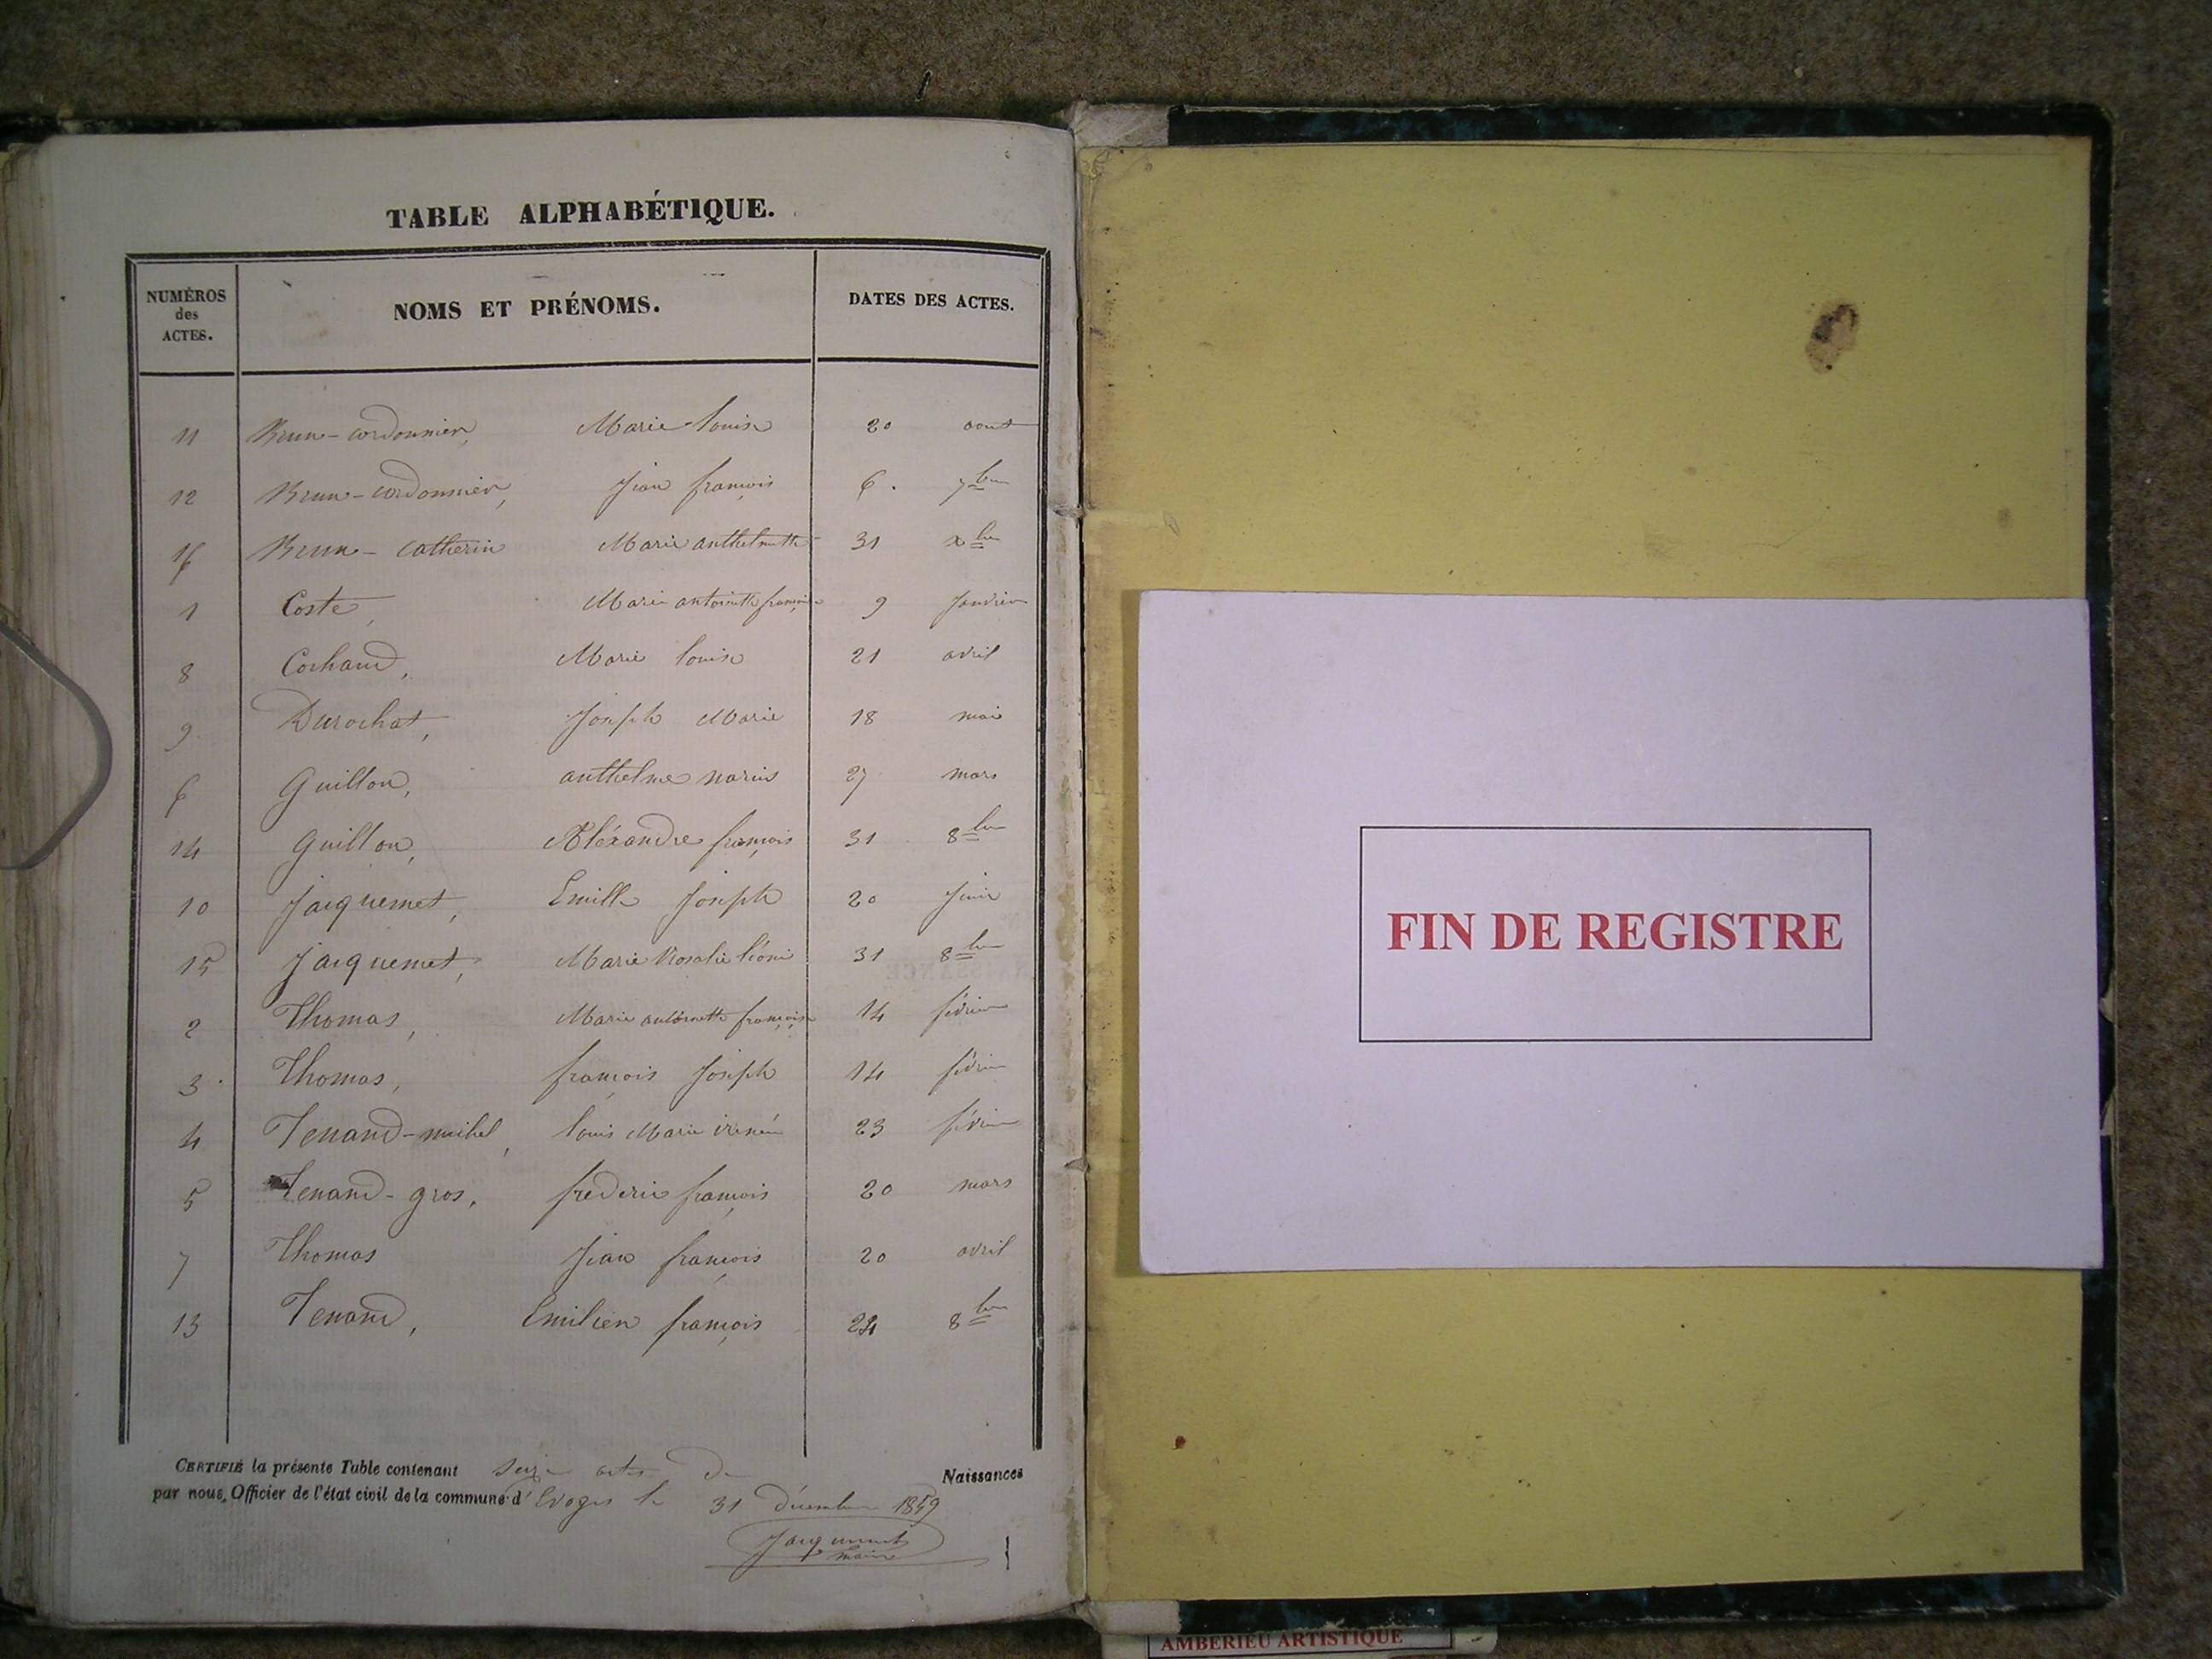 TABLE ALPHABÉTIQUE.
NUMÉROS des ACTES.
NOMS ET PRÉNOMS.
DATES DES ACTES.
11 Brun-cordonnier, Marie louise 20 aout
12 Brun-cordonnier, Jean françois 6. 7bre
16 Brun-catherin Marie anthelmette 31 xbre
1 Coste, Marie antoinette françoise 9 Janvier
8 Cochand, Marie louise 21 avril
9 Durochat, Joseph Marie 18 mai
6 Guillon, anthelme marius 27 mars
14 Guillon, Aléxandre françois 31 8bre
10 Jacquemet, Emille Joseph 20 Juin
15 Jacquemet, Marie Rosalie léonie 31 8bre
2 Thomas, Marie antoinette françoise 14 février
3 Thomas, françois Joseph 14 février
4 Tenand-michel, louis Marie irénée 23 février
5 Tenand-gros, frédéric françois 20 mars
7 Thomas Jean françois 20 avril
13 Tenand, Emilien françois 24 8bre
CERTIFIÉ la présente Table contenant Seize actes de Naissances
par nous, Officier de l'état civil de la commune d'Evoges le 31 décembre 1859
Jacquemet
maire
FIN DE REGISTRE
AMBERIEU ARTISTIQUE